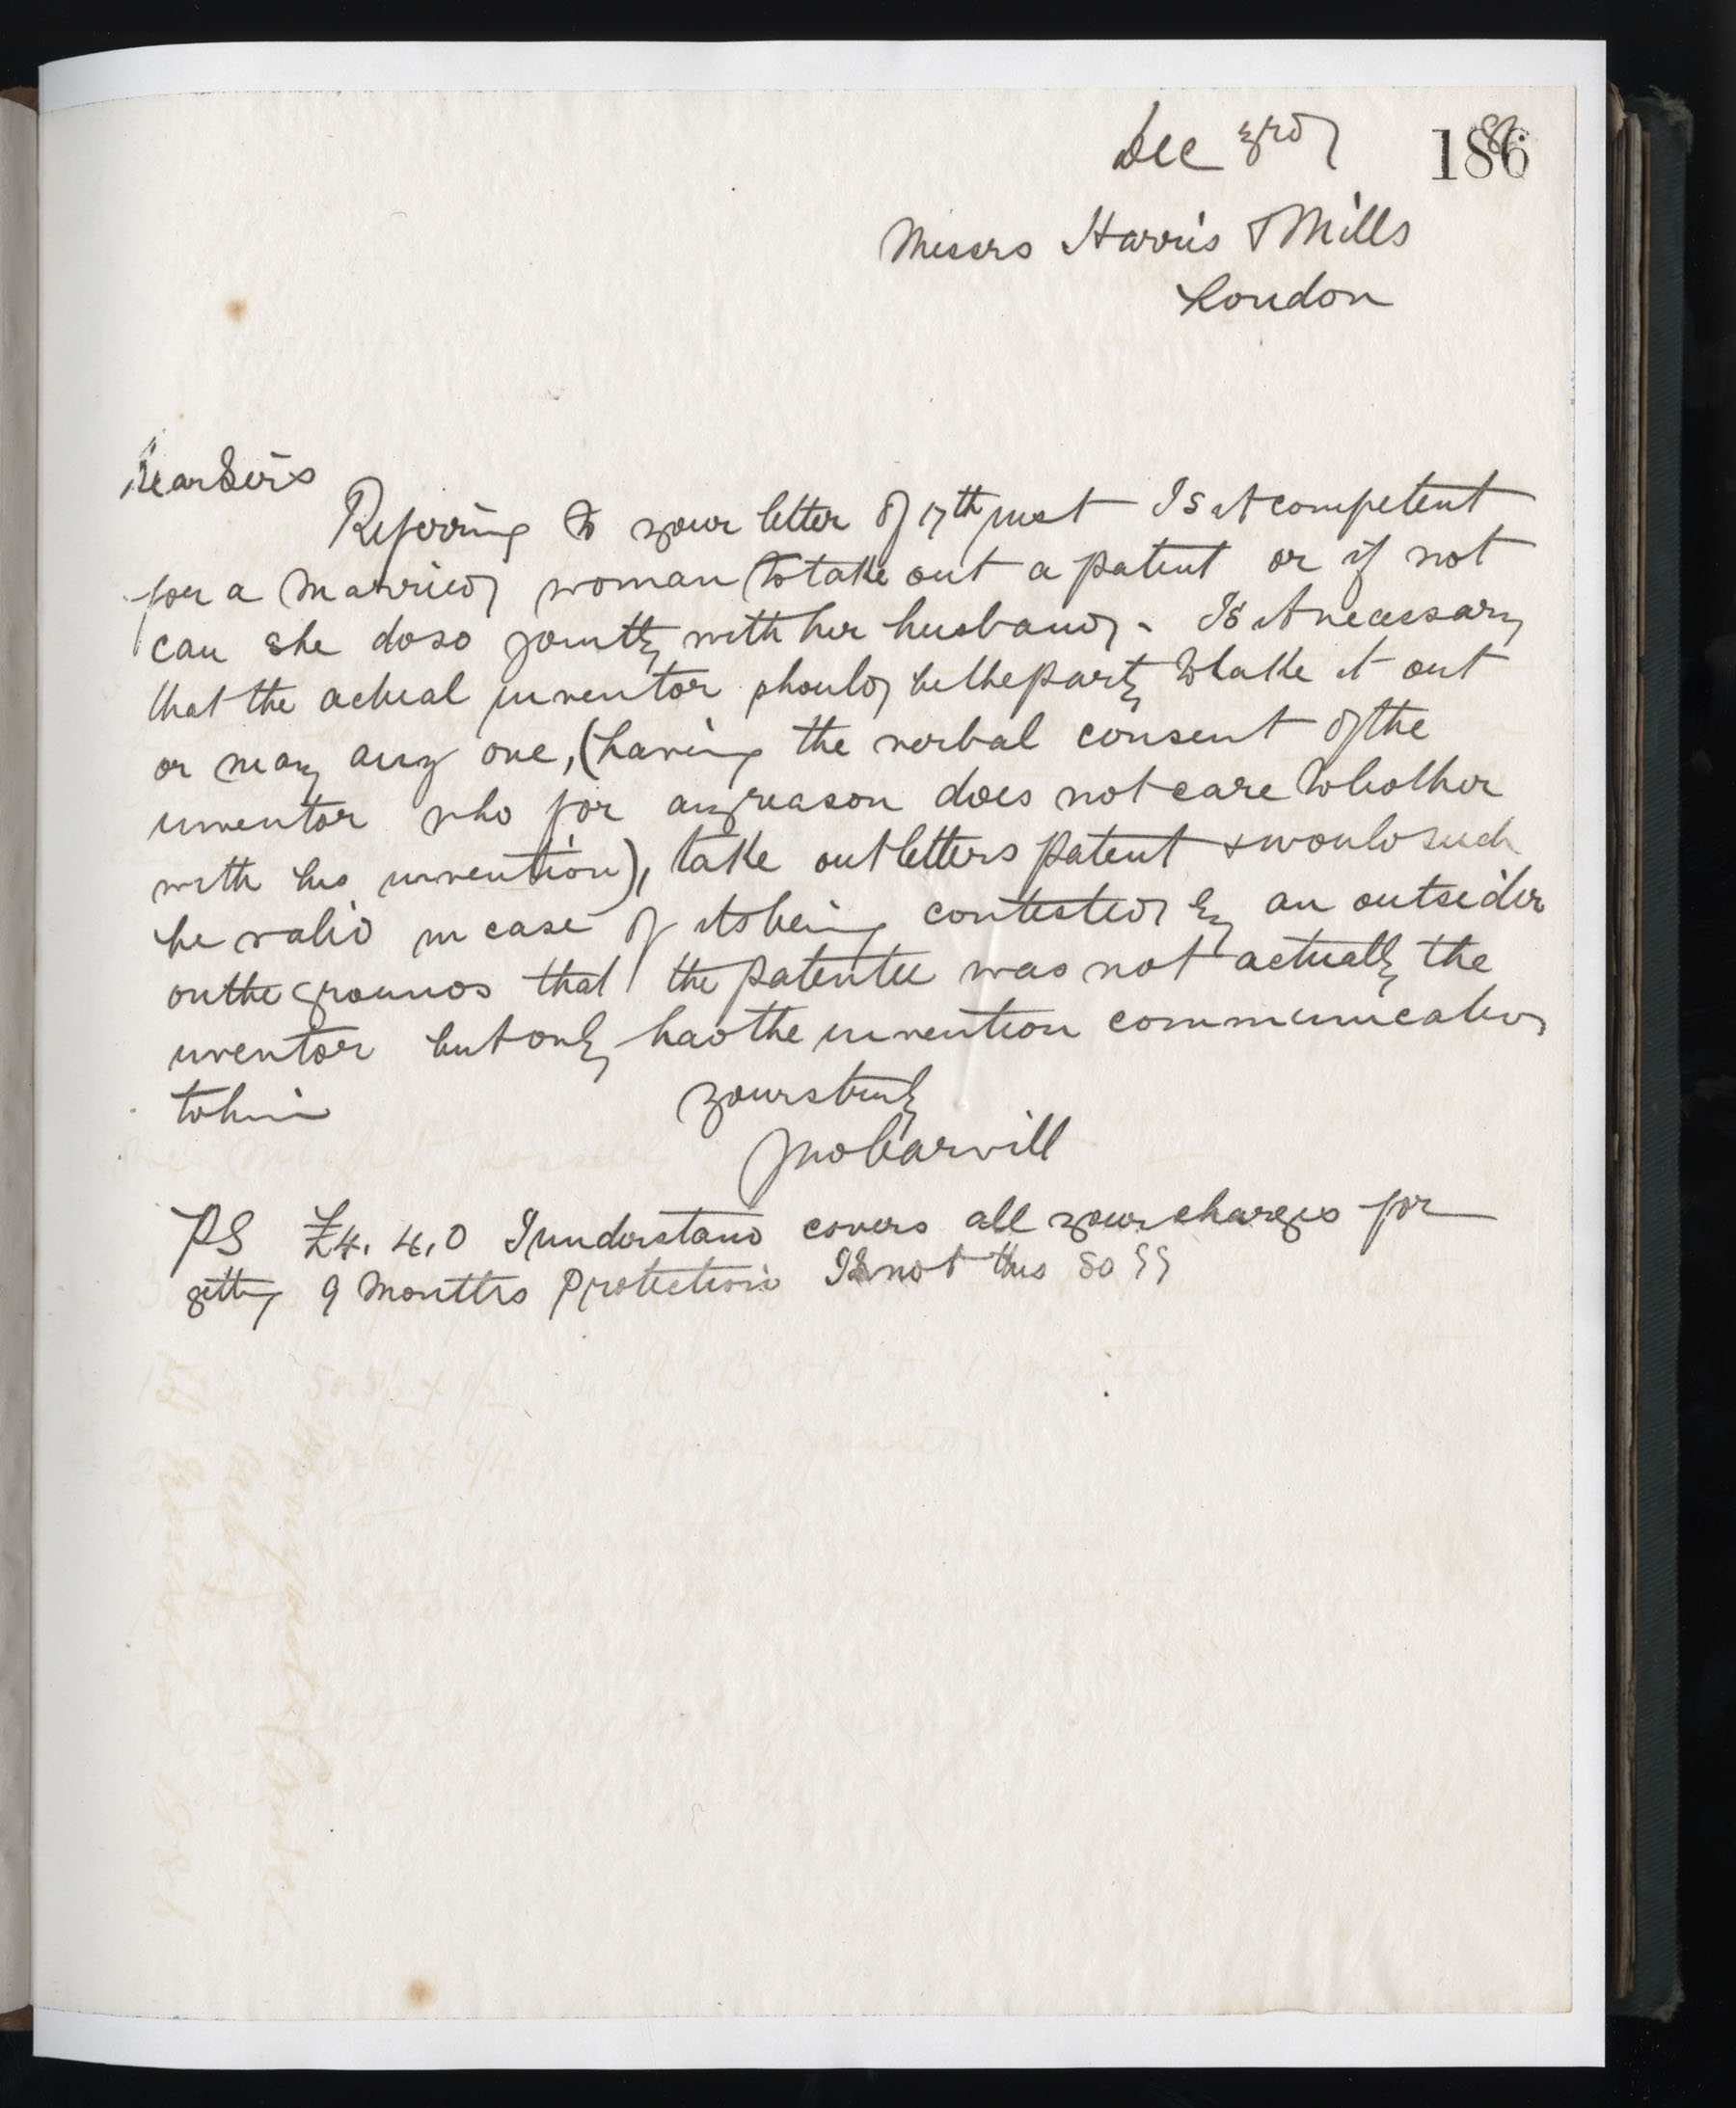 Dec 3rd 86
186
Messrs Harris & Mills
London
Dear Sirs
Referring to your letter of 17th inst Is it competent
for a married woman to take out a patent or if not
can she do so jointly with her husband. Is it necessary
that the actual inventor should be the party to take it out
or may any one, (having the verbal consent of the
inventor who for any reason does not care to bother
with his invention), take out letters patent & would such
be valid in case of its being contested by an outsider
on the grounds that the patentee was not actually the
inventor but only had the invention communicated
to him
yours truly
Jno Carvill
PS £4.4.0 I understand covers all your charges for
getting 9 months protection Is not this so ??